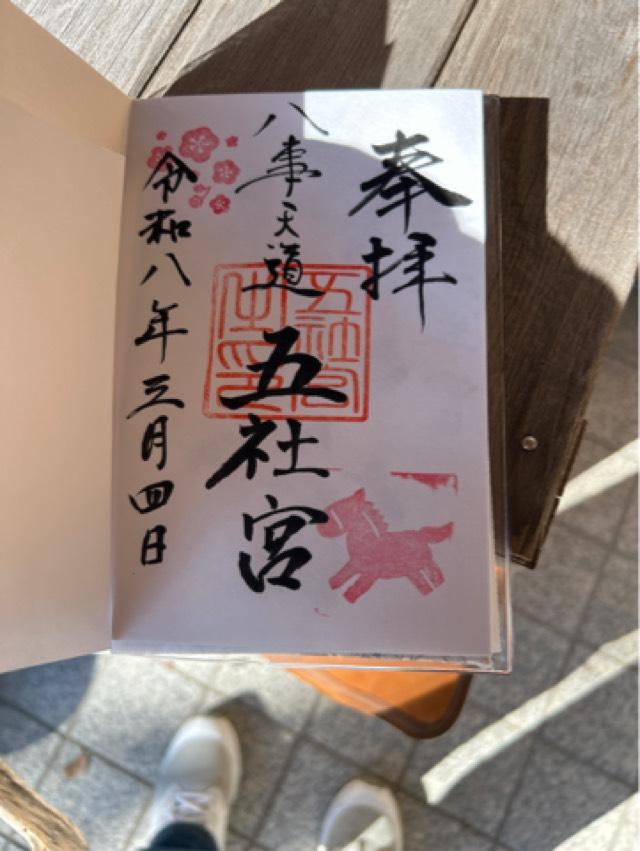 奉拝
八事天道
五社宮
令和八年三月四日